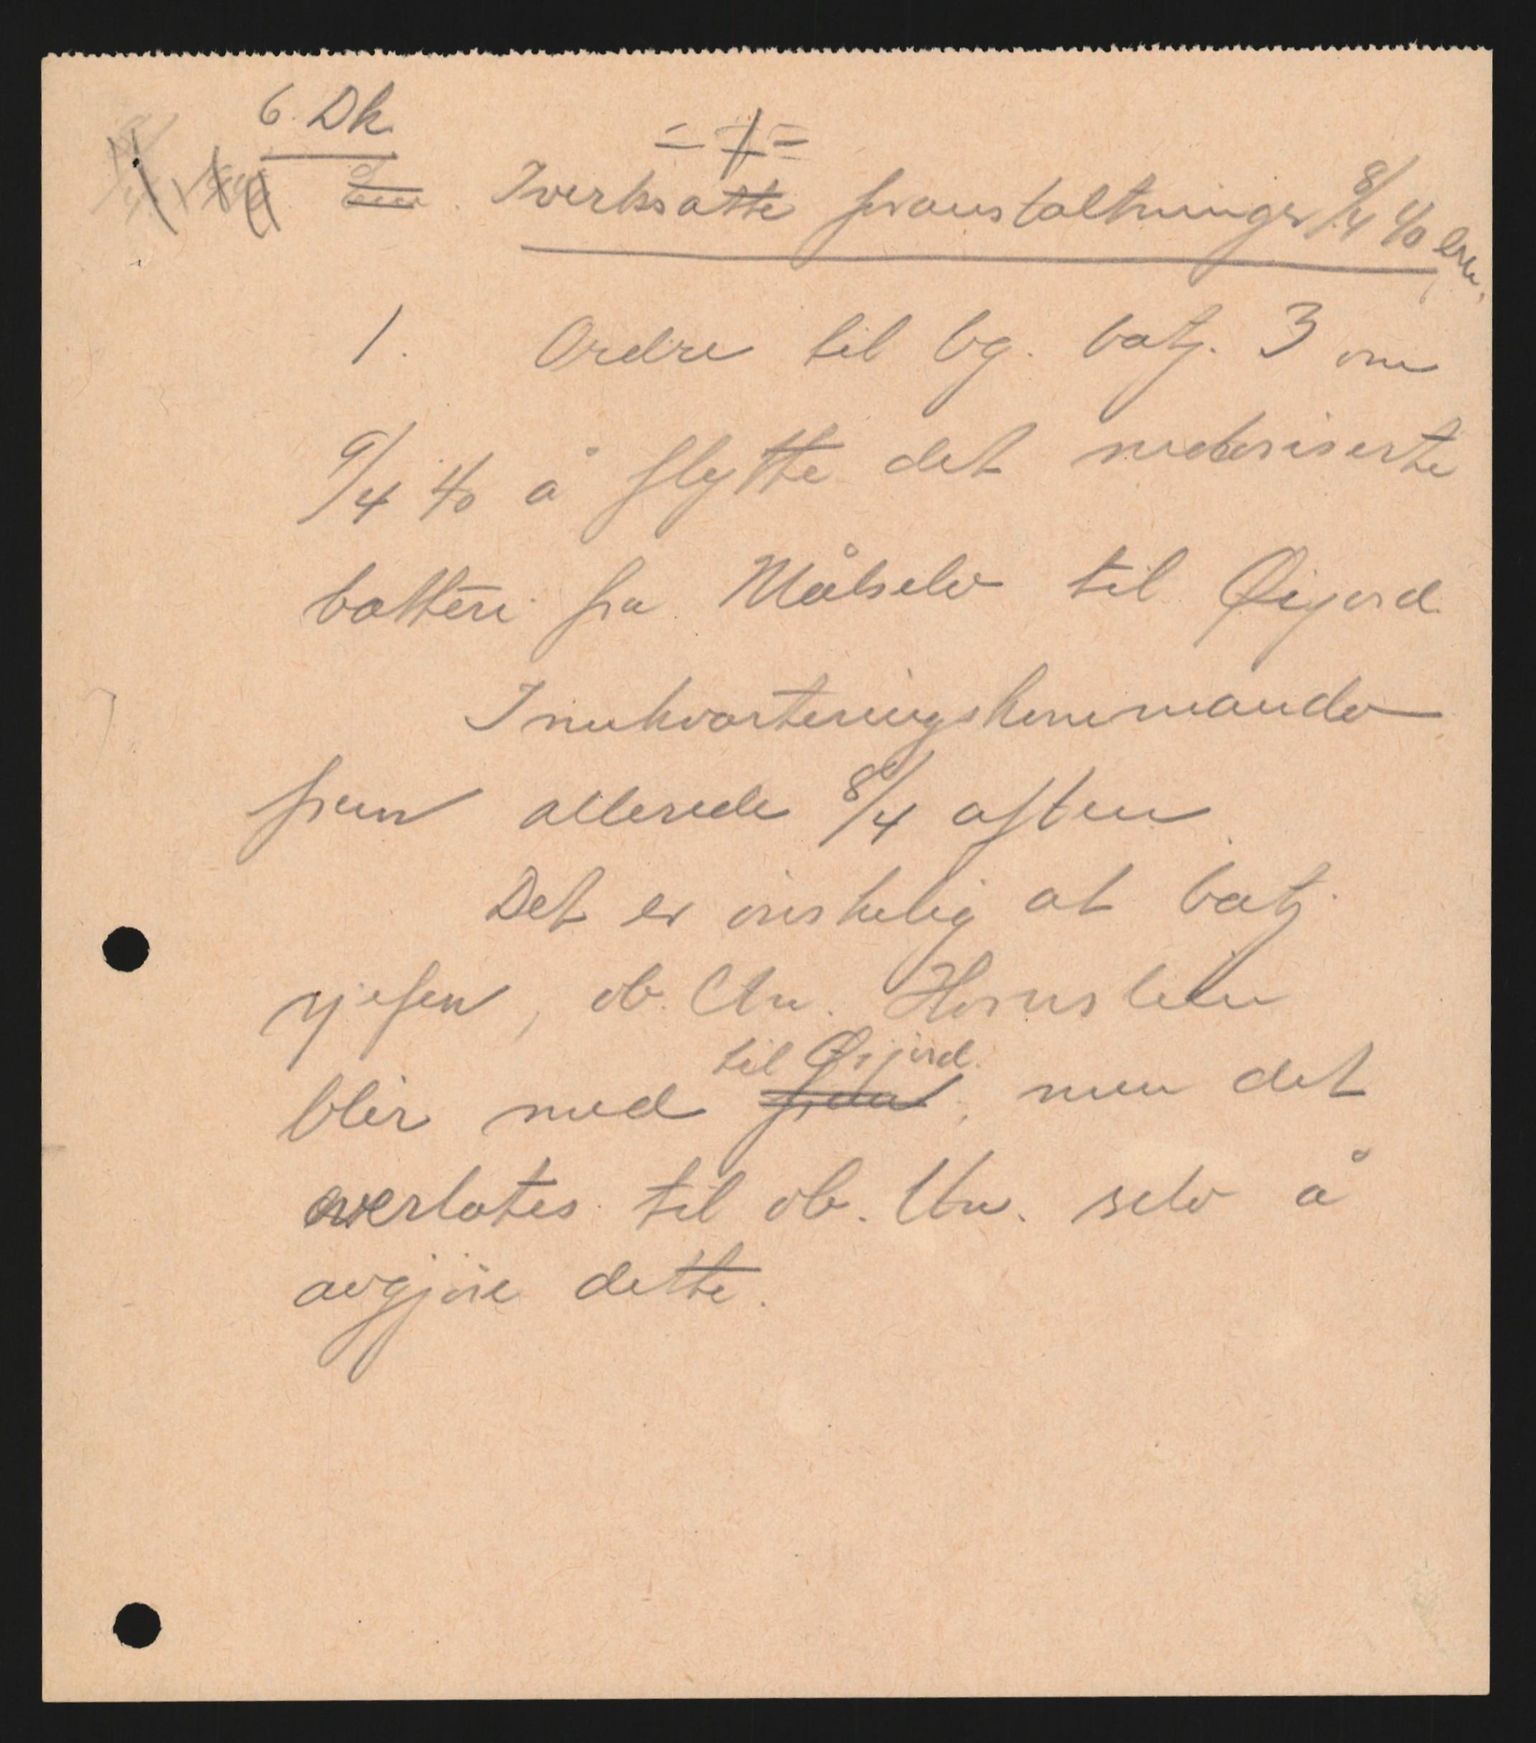 6. Dk.
Iverksatte foranstaltninger 8/4 40
1. Ordre til bg. batj. 3 om
9/4 40 å flytte det motoriserte
batteri fra Målselv til Øijord.
Innkvarteringskommando
frem allerede 8/4 aften
Det er ønskelig at batj.
sjefen, ob. ltn. Hornslien
til Øijord.
blir med frem, men det
overlates til ob. ltn. selv å
avgjøre dette.